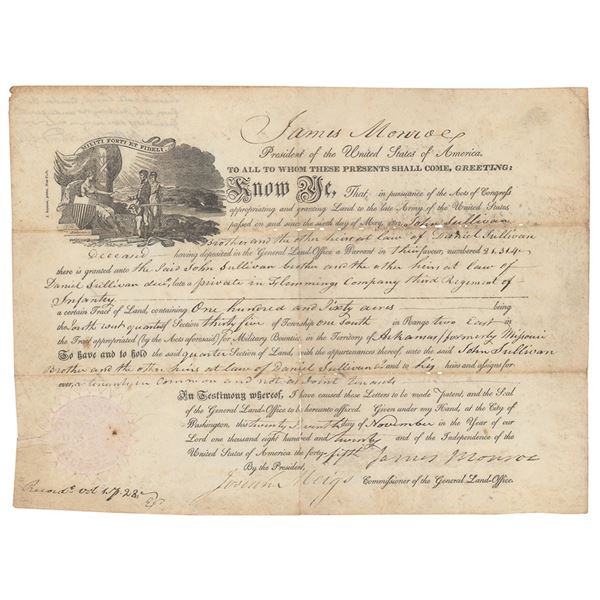 James Monroe
President of the United States of America.
MILITI FORTI ET FIDELI.
TO ALL TO WHOM THESE PRESENTS SHALL COME, GREETING:
Know Ye, That, in pursuance of the Acts of Congress
appropriating and granting Land to the late Army of the United States,
passed on and since the sixth day of May, 1812 John Sullivan
Brother and the other heirs at law of Daniel Sullivan
Deceased having deposited in the General Land-Office a Warrant in their favour, numbered 21.314
there is granted unto the Said John Sullivan brother and the other heirs at law of
Daniel Sullivan decd late a private in Flemmings Company third Regiment of
Infantry
a certain Tract of Land, containing One hundred and Sixty acres being
the North west quarter of Section thirty five of Township one South in Range two East in
the Tract appropriated (by the Acts aforesaid) for Military Bounties, in the Territory of Arkansas/formerly Missouri
To have and to hold the said quarter Section of Land, with the appurtenances thereof, unto the said John Sullivan
Brother and the other heirs at law of Daniel Sullivan and to his heirs and assigns for
ever, a tenants in Common and not as Joint tenants
In Testimony whereof, I have caused these Letters to be made Patent, and the Seal
of the General Land-Office to be hereunto affixed. Given under my Hand, at the City of
Washington, this twenty Seventh day of November in the Year of our
Lord one thousand eight hundred and twenty and of the Independence of the
United States of America the forty-fifth James Monroe
By the President,
Josiah Meigs Commissioner of the General Land-Office.
Recorded Vol